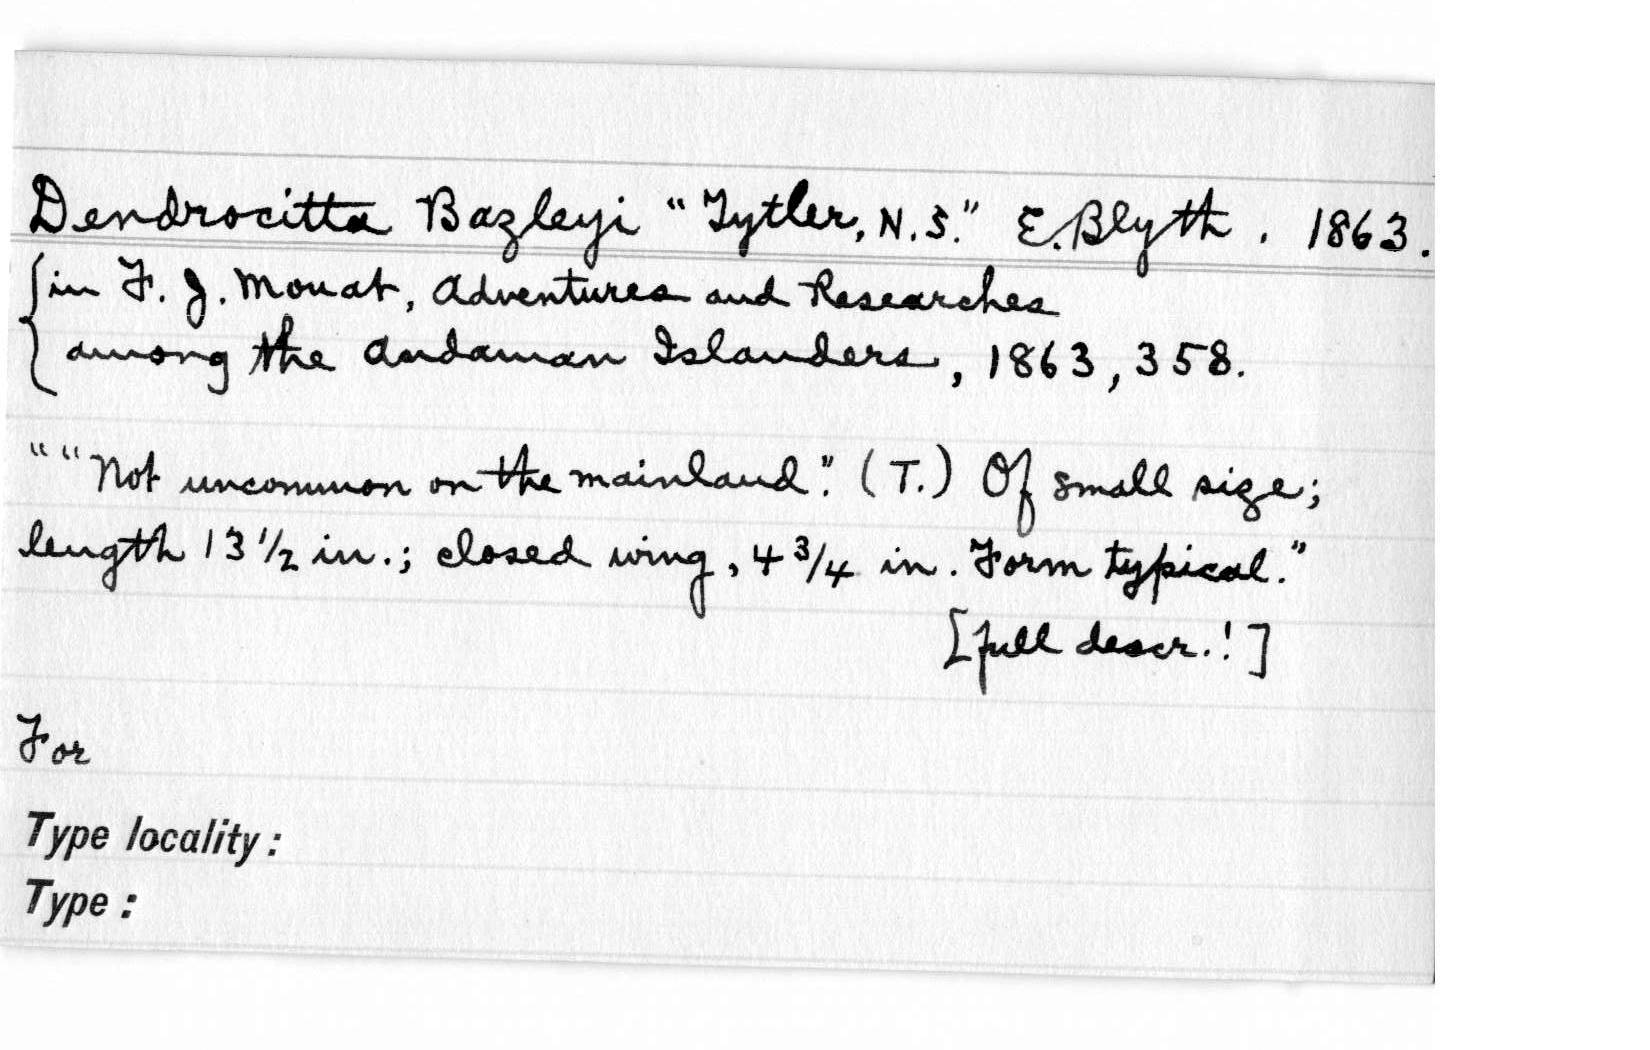 Dendrocitta Bazleyi "Tytler, N.S." E. Blyth. 1863.
{in F. J. Mouat, Adventures and Researches
among the Andaman Islanders, 1863, 358.
""Not uncommon on the mainland." (T.) Of small size;
length 13 1/2 in.; closed wing, 4 3/4 in. Form typical."
[full descr.!]
For
Type locality:
Type: